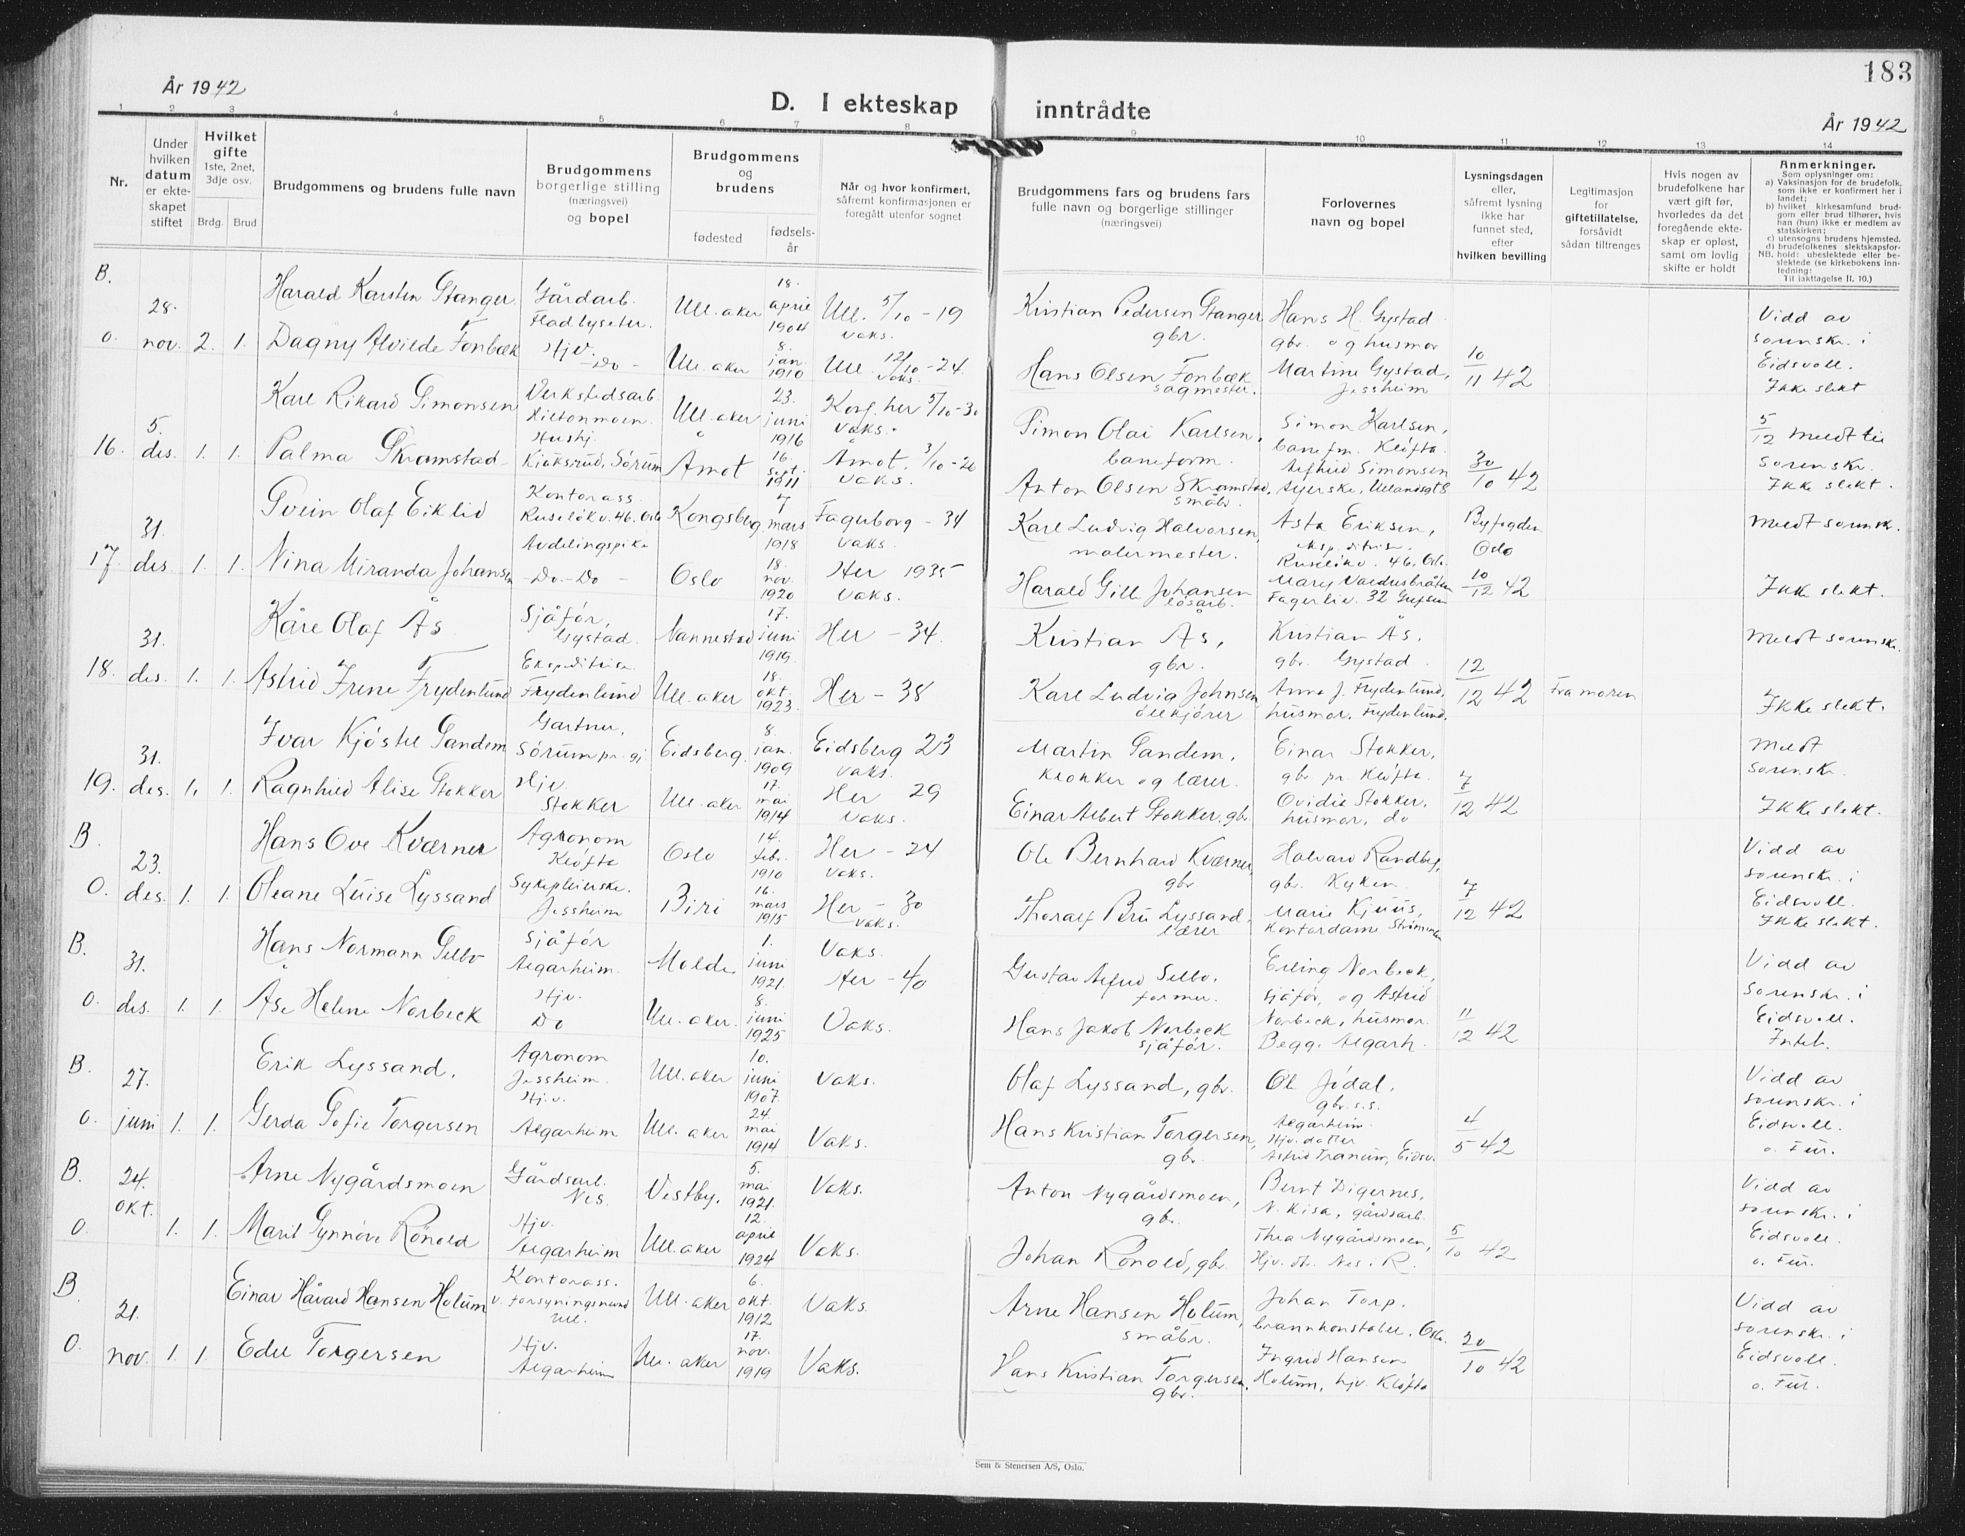 183
År 1942
D. I ekteskap inntrådte
År 1942
1 2 3 4 5 6 7 8 9 10 11 12 13 14
Nr.
Under
hvilken
datum
er ekte-
skapet
stiftet
Hvilket
gifte
1ste, 2net,
3dje osv.
Brdg. Brud
Brudgommens og brudens fulle navn
Brudgommens
borgerlige stilling
(næringsvei)
og bopel
Brudgommens
og
brudens
fødested
fødsels-
år
Når og hvor konfirmert,
såfremt konfirmasjonen er
foregått utenfor sognet
Brudgommens fars og brudens fars
fulle navn og borgerlige stillinger
(næringsvei)
Forlovernes
navn og bopel
Lysningsdagen
eller,
såfremt lysning
ikke har
funnet sted,
efter
hvilken bevilling
Legitimasjon
for
giftetillatelse,
forsåvidt
sådan tiltrenges
Hvis nogen av
brudefolkene har
vært gift før,
hvorledes da det
foregående ekte-
skap er opløst,
samt om lovlig
skifte er holdt
Anmerkninger.
Som oplysninger om:
a) Vaksinasjon for de brudefolk,
som ikke er konfirmert her i
landet;
b) hvilket kirkesamfund brud-
gom eller brud tilhører, hvis
han (hun) ikke er medlem av
statskirken;
c) utensogns brudens hjemsted.
d) brudefolkenes slektskapsfor-
NB. hold: ubeslektede eller be-
slektede (se kirkebokens inn-
ledning:
Til iakttagelse II. 10.)
B. 28. Harald Karsten Stanger Gårdarb. Fladbyseter. Ull.aker 18. april 1904 Ull. 5/10 - 19 vaks. Kristian Pedersen Stanger gbr. Hans H. Gystad gbr. og husmor Vidd av sorenskr. i
o. nov. 2. 1. Dagny Alvilde Fonbæk Hjv. - Do - Ull.aker 8. jan. 1910 Ull. 12/10 - 24. Vaks. Hans Olsen Fonbæk sagmester. Martine Gystad, Jessheim 10/11 42 Eidsvoll. Ikke slekt
5. Karl Rikard Simonsen Verkstedsarb. Ull.aker 23. juni 1916 Konf. her 5/10-30 Vaks. Simon Olai Karlsen, baneform. Simon Karlsen, banefm. Kløfta. 5/12 meldt til
16. des. 1. 1. Palma Skramstad Kjoksrud, Sørum Åmot 16. sept. 1911 Åmot. 3/10-26 vaks. Anton Olsen Skramstad, småbr. Simonsen 30/10 42 sorenskr. Ikke slekt.
31. Svein Olaf Eiklid Kontorass. Ruseløkv. 46. Oslo Kongsberg 7 mars 1918 Fagerborg - 34 Vaks. Karl Ludvig Halvorsen, malermester. Asta Eriksen, ekspeditrise. Ruseløkv. 46. Oslo. Byfogden Oslo meldt sorensk.
17. des. 1. 1. Nina Miranda Johansen Avdelingspike - Do - Do - Oslo 18. nov. 1920 Her 1935 Vaks. Harald Gill Johansen løsarb. Mary Valdresbråten Fagerliv. 32 Grefsen 10/12 42 Ikke slekt.
31. Kåre Olaf Ås Sjåfør, Gystad. Nannestad 17. juni 1919. Her - 34. Kristian Ås, gbr. Kristian Ås, gbr. Gystad. meldt sorensk.
18. des. 1. 1. Astrid Irene Frydenlund Ekspeditrise Frydenlund Ull.aker 18. okt. 1923. Her - 38 Karl Ludvig Johnsen, ølkjører Anna J. Frydenlund, husmor. Frydenlund. 12/12 42 Fra moren Ikke slekt.
31. Ivar Kjøstel Sandem Gartner, Sørum pr. Eidsberg. 8. jan. 1909 Eidsberg 23 vaks. Martin Sandem, klokker og lærer. Einar Stokker, gbr. pr. Kløfta. Meldt sorenskr.
19. des. 1. 1. Ragnhild Alise Stokker Hjv. Stokker Ull.aker 17. mai 1914 Her 29 Vaks. Einar Albert Stokker, gbr. Ovidie Stokker, husmor, do 7/12 42 Ikke slekt.
B. 23. Hans Ove Kværner Agronom Kløfta Oslo 14. febr. 1910 Her - 24 Vaks. Ole Bernhard Kværner, gbr. Halvard Randby, gbr. Kyken. Vidd av sorenskr. i
O. des. 1. 1. Oleane Luise Lyssand Sykepleierske. Jessheim Biri 16. mars 1915 Her - 30 Vaks. Thoralf Bru Lyssand, lærer Marie Kjuus, Kontordame 7/12 42 Eidsvoll. Ikke slekt.
B. 31. Hans Normann Selbo Sjåfør Algarheim. Molde 1. juni 1921. Vaks. Her - 40 Gustav Alfred Selbo, former. Erling Norbeck, sjåfør, og Astrid Vidd av sorenskr. i
O. des. 1. 1. Åse Helene Norbeck Hjv. Do Ull.aker. 8. juni 1925 Vaks. Hans Jakob Norbeck sjåfør. Norbeck, husmor. Begge Algarh. 11/12 42 Eidsvoll.
B. 27. Erik Lyssand. Agronom Jessheim. Ull.aker 10. juni 1907 Vaks. Olaf Lyssand, gbr. Ole Jødal, gbr. s.s. Vidd av sorenskr. i
O. juni 1. 1. Gerda Sofie Torgersen Hjv. Algarheim Ull.aker 24. mai 1914 Vaks. Hans Kristian Torgersen, gbr. Algarheim. Hjv. datter Astrid Tranum, Eidsv. 4/5 42 Eidsvoll. o. Ful.
B. 24. okt. Arne Nygårdsmoen Gårdsarb. Nes Vestby. 5. mai 1921. Vaks. Anton Nygårdsmoen, gbr. Bernt Digernes, N. Kisa, gårdsarb. Vidd av sorenskr. i
O. 1. 1. Marit Synnøve Rønold Hjv. Algarheim Ull.aker 12. april 1924 Vaks. Johan Rønold, gbr. Thea Nygårdsmoen, Hjv. Nes. R. 5/10 42 Eidsvoll. o. Ful.
B. 21. Einar Håvard Hansen Holum Kontorass. v. forsyningsnemnd Ull. Ull.aker 6. okt. 1912 Vaks. Arne Hansen Holum, småbr. Johan Torp, brannkonstabel. Oslo. Vidd av sorenskr. i
O. nov. 1. 1. Edel Torgersen Hjv. Algarheim Ull.aker 17. nov. 1919 Vaks. Hans Kristian Torgersen, gbr. Ingrid Hansen Holum, hjv. Kløfta 20/10 42 Eidsvoll. o. Ful.
Sem & Stenersen A/S, Oslo.